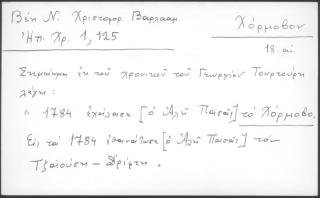 Βέη Ν. Χριστοφορ. Βαρλααμ.
Ἠπ. Χρ. 1, 125
Χόρμοβον
18. αἰ
Σημείωμα ἐκ τοῦ χρονικοῦ τοῦ Γεωργίου Τουρτούρη
λέγει :
« 1784 ἐχάλασε [ὁ Ἀλῆ Πασᾶς] τὸ Χόρμοβο.
Εἰς τὰ 1784 ἐπανάστασι [ὁ Ἀλῆ Πασᾶς] τὸν